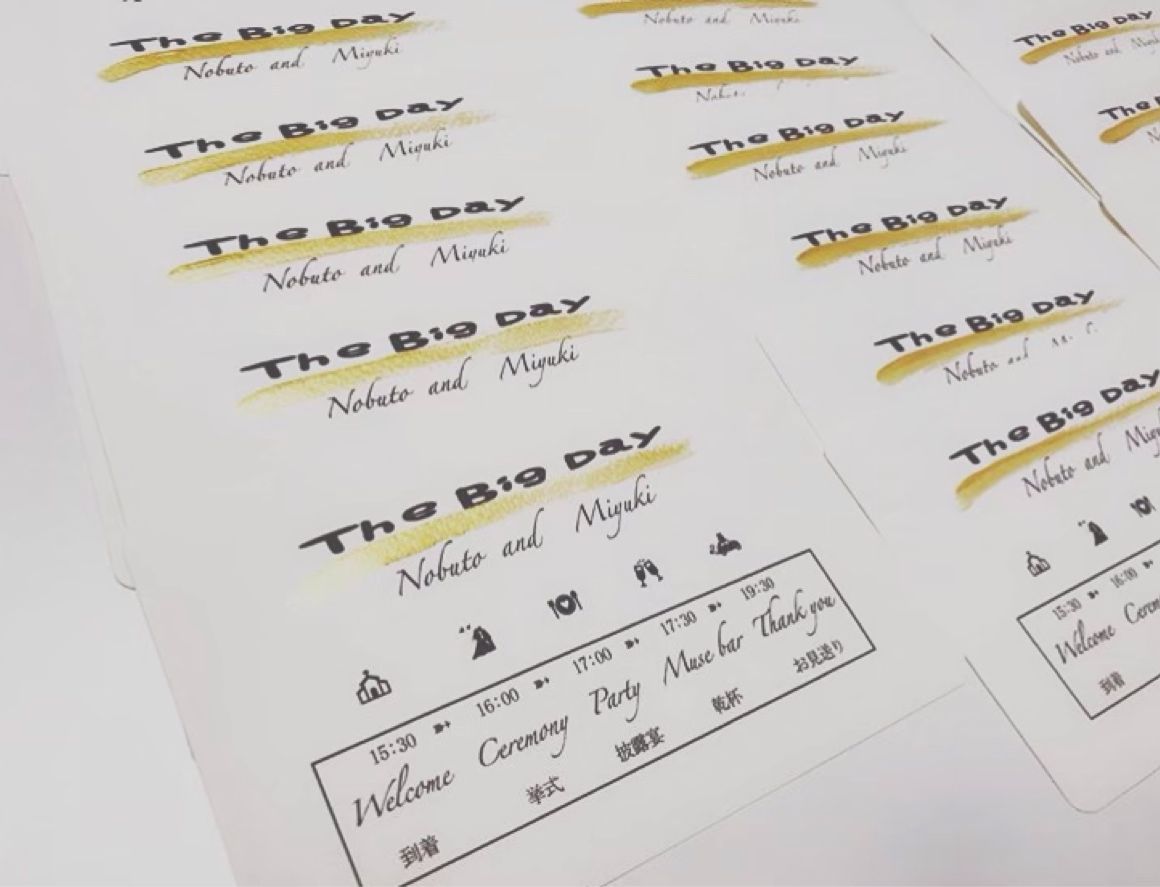 The Big Day
Nobuto and Miyuki
The Big Day
Nobuto and Miyuki
The Big Day
Nobuto and Miyuki
The Big Day
Nobuto and Miyuki
The Big Day
Nobuto and Miyuki
15:30 16:00 17:00 17:30 19:30
Welcome Ceremony Party Muse bar Thank you
到着 挙式 披露宴 乾杯 お見送り
Nobuto and Miyuki
The Big Day
The Big Day
Nobuto and Miyuki
The Big Day
Nobuto and Miyuki
The Big Day
Nobuto and
The Big Day
Nobuto and
15:30 16:00
Welcome
到着
The Big Day
Nobuto and
The